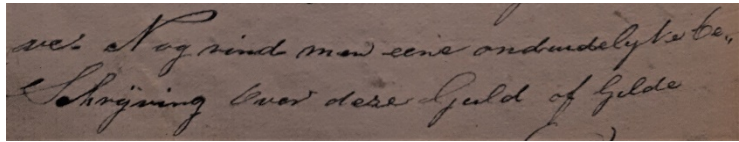 ve. Nog vind men eene onduidelyke be„
Schrÿving over deze Guld of Gilde